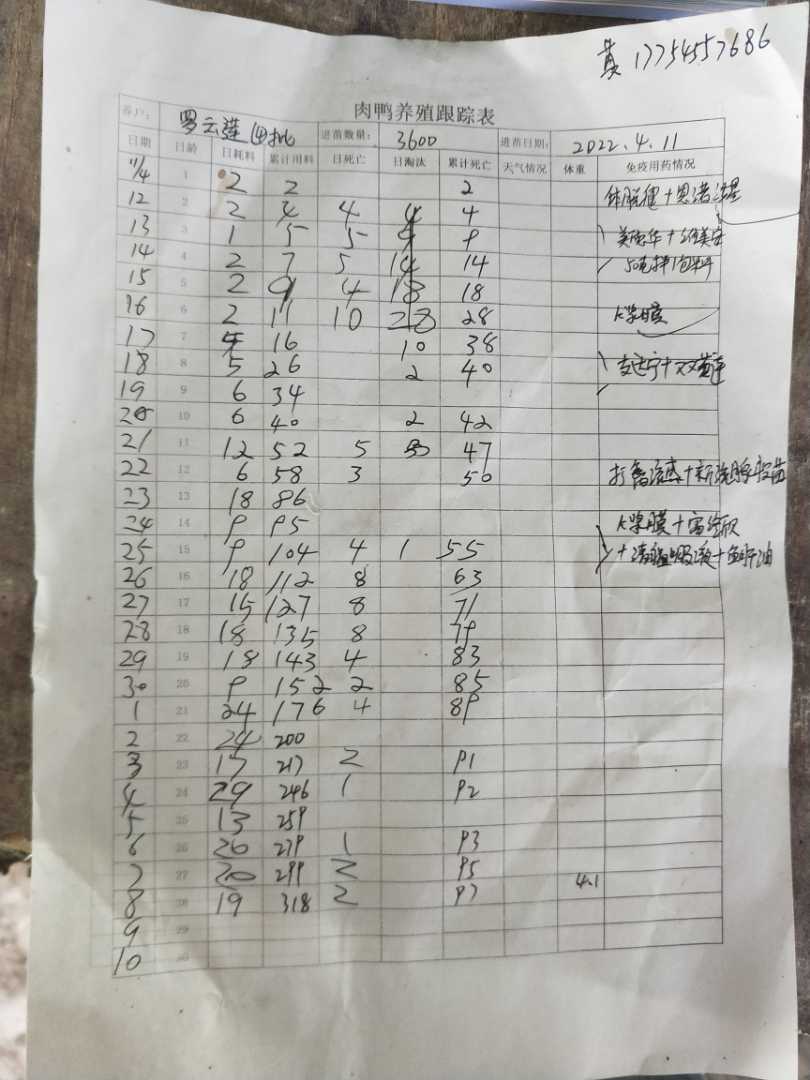 黄 17754557686
肉鸭养殖跟踪表
养户： 罗云莲 (4)批 进苗数量： 3600 进苗日期： 2022.4.11
日期 日龄 日耗料 累计用料 日死亡 日淘汰 累计死亡 天气情况 体重 免疫用药情况
11/4 1 2 2 2
12 2 2 4 4 4
13 3 1 5 5 9
14 4 2 7 5 14 14
15 5 2 9 4 18 18
16 6 2 11 10 28 28
17 7 5 16 10 38
18 8 5 26 2 40
19 9 6 34
20 10 6 40 2 42
21 11 12 52 5 47
22 12 6 58 3 50
23 13 18 86
24 14 9 95
25 15 9 104 4 1 55
26 16 18 112 8 63
27 17 15 127 8 71
28 18 18 135 8 79
29 19 18 143 4 83
30 20 9 152 2 85
1 21 24 176 4 89
2 22 24 200
3 23 17 217 2 91
4 24 29 246 1 92
5 25 13 259
6 26 20 279 1 93
7 27 20 299 2 95 4.1
8 28 19 318 2 97
9 29
10 30